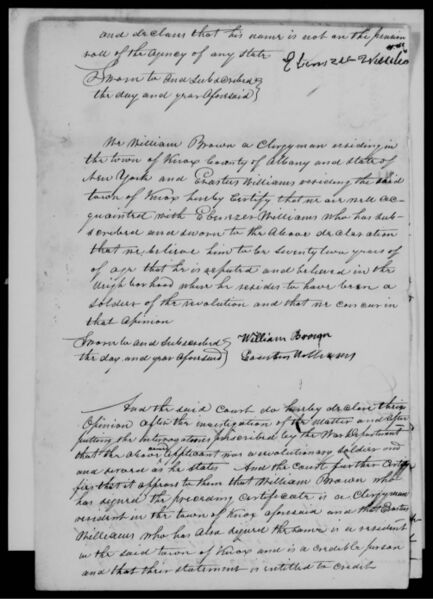 and declares that his name is not on the pension
roll of the agency of any state
Sworn to and Subscribed
the day and year Aforesaid
We William Brown a Clergyman residing in
the town of Knox County of Albany and state of
New York and Erastus Williams residing the said
town of Knox hereby Certify that we are well Ac-
quainted with Ebenezer Williams who has sub-
scribed and sworn to the Above declaration
that we believe him to be seventy two years of
of age that he is reputed and believed in the
Neighborhood where he resides to have been a
soldier of the revolution and that we concur in
that opinion
Sworn to and Subscribed William Brown
the day and year Aforesaid Erastus Williams
And the said Court do hereby declare their
Opinion after the investigation of the matter and After
putting the Interogatories prescribed by the War Department
that the Above applicant was a revolutionary soldier and
and served as he states And the Court further Certi-
fies that it appears to them that William Brown who
has signed the preceding Certificate is a Clergyman
resident in the town of Knox aforesaid and that Erastus
Williams who has also signed the same is a resident
in the said town of Knox and is a credible person
and that their statement is intitled to Credit